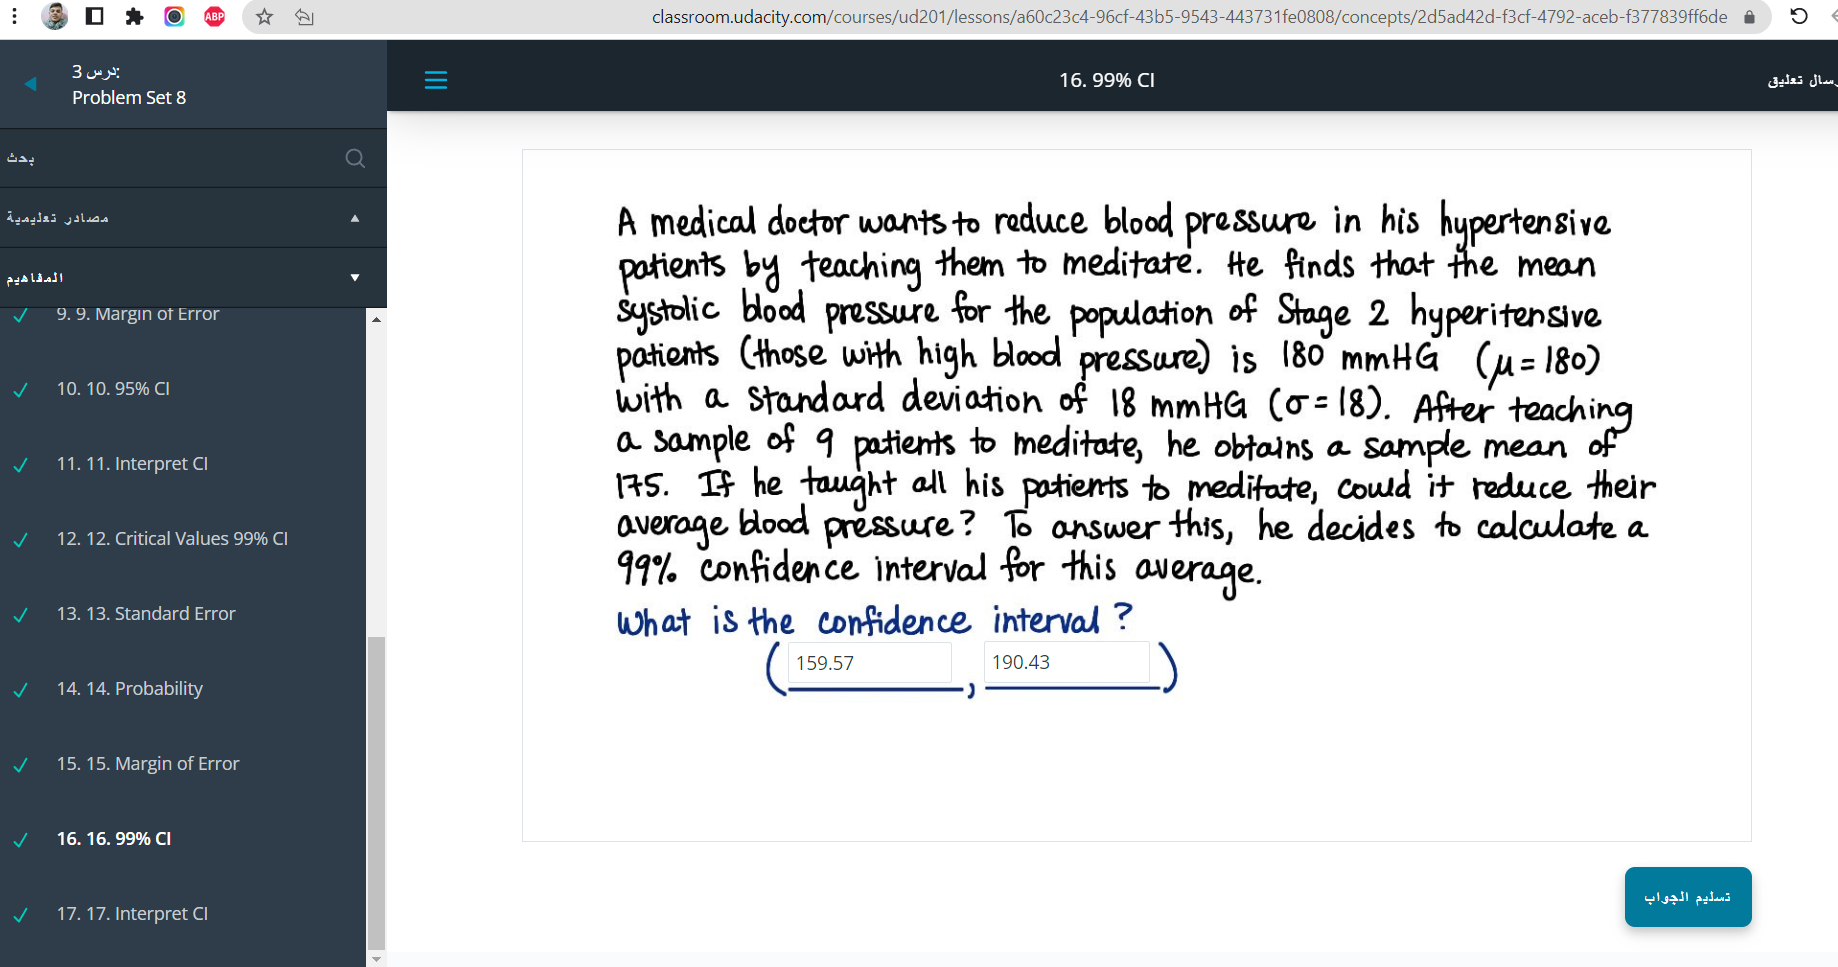 ABP
classroom.udacity.com/courses/ud201/lessons/a60c23c4-96cf-43b5-9543-443731fe0808/concepts/2d5ad42d-f3cf-4792-aceb-f377839ff6de
درس 3:
Problem Set 8
بحث
مصادر تعليمية
المفاهيم
9. 9. Margin of Error
10. 10. 95% CI
11. 11. Interpret CI
12. 12. Critical Values 99% CI
13. 13. Standard Error
14. 14. Probability
15. 15. Margin of Error
16. 16. 99% CI
17. 17. Interpret CI
16. 99% CI
رسال تعليق
A medical doctor wants to reduce blood pressure in his hypertensive
patients by teaching them to meditate. He finds that the mean
systolic blood pressure for the population of Stage 2 hyperitensive
patients (those with high blood pressure) is 180 mmHG (μ = 180)
with a standard deviation of 18 mmHG (σ = 18). After teaching
a sample of 9 patients to meditate, he obtains a sample mean of
175. If he taught all his patients to meditate, could it reduce their
average blood pressure? To answer this, he decides to calculate a
99% confidence interval for this average.
What is the confidence interval?
(159.57, 190.43)
تسليم الجواب